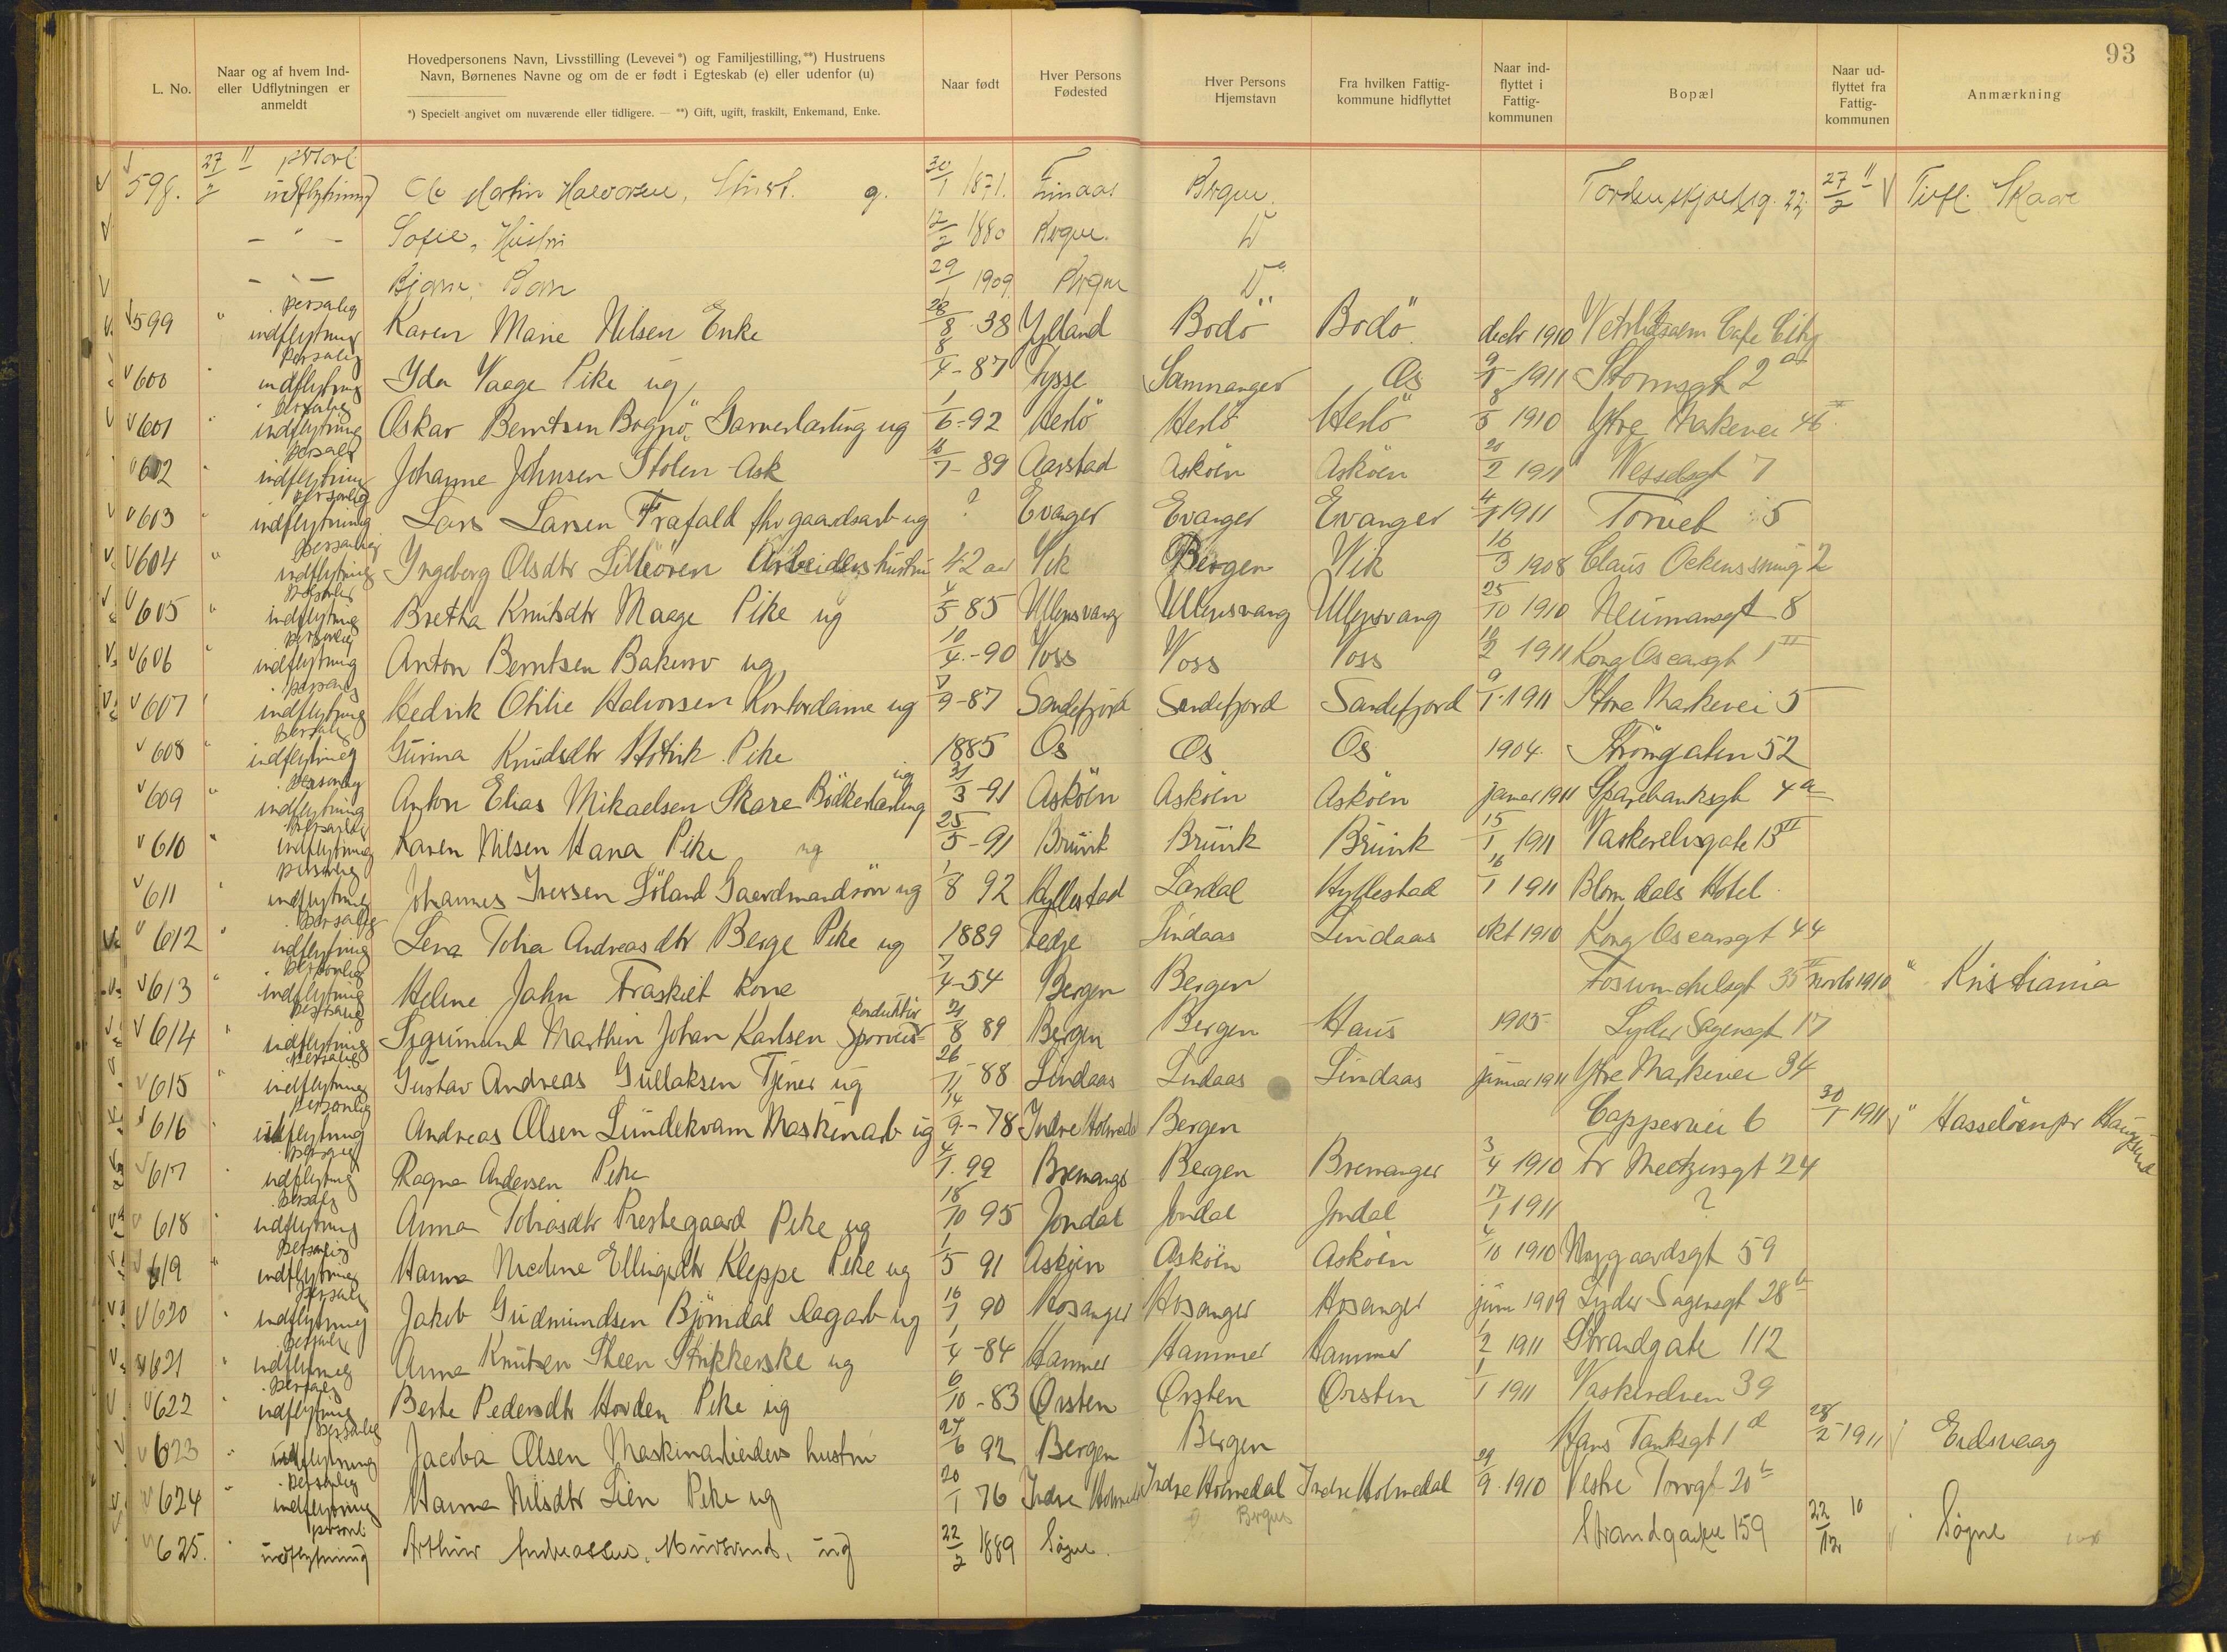 93
L. No. Naar og af hvem Ind- eller Udflytningen er anmeldt Hovedpersonens Navn, Livsstilling (Levevei*) og Familjestilling,**) Hustruens Navn, Børnenes Navne og om de er født i Egteskab (e) eller udenfor (u) Naar født Hver Persons Fødested Hver Persons Hjemstavn Fra hvilken Fattig-kommune hidflyttet Naar ind-flyttet i Fattig-kommunen Bopæl Naar ud-flyttet fra Fattig-kommunen Anmærkning
*) Specielt angivet om nuværende eller tidligere. — **) Gift, ugift, fraskilt, Enkemand, Enke.
598. 27/2 11 personl udflytning Martin Halvorsen, g. 30/1 1871. Finaas Bergen. Tordenskjoldsg. 22 27/2 11 Skaare
- " - Sofie, Hustru 12/2 1880 Bergen. D
- " - Bjarne, Barn 29/1 1909 Bergen Do
599 " personlig indflytning Karen Marie Nilsen Enke 28/8 38 Jylland Bodö Bodö decbr 1910 Cafe City
600 " personlig indflytning Yda Vaage Pike ug 8/4 - 87 Tysse Samnanger Os 9/1 1911 Stormsgt 2 a
601 " personlig indflytning Oskar Berntsen Bognö Garverlærling ug 1/6 - 92 Herlö Herlö Herlö 8/5 1910 Ytre Markevei 46
602 " personlig indflytning Johanne Johnsen Stolen Ask 16/7 - 89 Aarstad Asköen Asköen 21/2 1911 Wesselsgt 7
603 " personlig indflytning Lars Larsen Trafald fhv gaardsarb ug ? Evanger Evanger Evanger 4/1 1911 Torvet 5
604 " personlig indflytning Yngeborg Olsdtr Lilleören Arbeiders hustru 42 aar Vik Bergen Vik 16/3 1908 Claus Ockenssmug 2
605 " personlig indflytning Bretha Knutsdtr Maage Pike ug 4/5 85 Ullensvang Ullensvang Ullensvang 25/10 1910 Neumansgt 8
606 " personlig indflytning Anton Berntsen Bakersv ug 10/4 - 90 Voss Voss Voss 10/2 1911 Kong Oscarsgt 1 II
607 " personlig indflytning Hedvik Otilie Halvorsen Kontordame ug 7/9 - 87 Sandefjord Sandefjord Sandefjord 9/1 1911 Ytre Markevei 5
608 " personlig indflytning Gurina Knudsdtr Pike 1885 Os Os Os 1904. Strömgaten 52
609 " personlig indflytning Anton Elias Mikaelsen Skare Bödkerlærling ug 31/3 - 91 Asköen Asköen Asköen januar 1911 Sparebanksgt 4 a
610 " personlig indflytning Karen Nilsen Hana Pike ug 25/5 - 91 Bruvik Bruvik Bruvik 15/1 1911 Vaskerelvsgate 13 II
611 " personlig indflytning Johannes Iversen Löland Gaardmandsön ug 1/8 92 Hyllestad Lardal Hyllestad 16/1 1911 Blomdals Hotel
612 " personlig indflytning Lena Tolia Andreasdtr Berge Pike ug 1889 Fedje Lindaas Lindaas okt 1910 Kong Oscarsgt 44
613 " personlig udflytning Helene Jahn Fraskilt Kone 7/4 - 54 Bergen Bergen Fosswinckelsgt 35 II novbr 1910 " Kristiania
614 " personlig indflytning Sigmund Marthin Johan Karlsen Sporvei- konduktör 21/8 89 Bergen Bergen Haus 1905 Lyder Sagensgt 17
615 " personlig indflytning Gustav Andreas Gullaksen Tjener ug 26/11 - 88 Lindaas Lindaas Lindaas januar 1911 Ytre Markevei 34
616 " personlig udflytning Andreas Olsen Lundekvam Maskinarb ug 14/9 - 78 Indre Holmedal Bergen Cappesvei 6 30/1 1911 " Hasselöen pr Haugesund
617 " personlig indflytning Ragna Andersen Pike 4/1 99 Bremanger Bergen Bremanger 3/4 1910 Fr Meltzersgt 24
618 " personlig indflytning Anna Tobiasdtr Prestegaard Pike ug 18/10 95 Jondal Jondal Jondal 17/1 1911 ?
619 " personlig indflytning Hanna Nicoline Ellingsdtr Kleppe Pike ug 1/5 91 Asköen Asköen Asköen 4/10 1910 Nygaardsgt 59
620 " personlig indflytning Jakob Gudmundsen Björndal Lagarb ug 16/1 90 Hosanger Hosanger Hosanger juni 1909 Lyder Sagensgt 28 b
621 " personlig indflytning Anna Knutsen Steen Strikkerske ug 1/4 - 84 Hammer Hammer Hammer 1/2 1911 Strandgate 112
622 " personlig indflytning Berte Pedersdtr Hovden Pike ug 6/10 - 83 Örsten Örsten Örsten 1/1 1911 Vaskerelven 39
623 " personlig udflytning Jacoba Olsen Maskinarbeiders hustru 27/6 92 Bergen Bergen Hans Tanksgt 1 d 28/2 1911 " Eidsvaag
624 " personlig indflytning Hanna Nilsdtr Lien Pike ug 20/1 76 Indre Holmedal Indre Holmedal Indre Holmedal 29/9 1910 Vestre Torvgt 20 b
625. " personl udflytning Arthur Andreassen, Mursvend, ug 22/2 1889 Sögne. Bergen Strandgaten 159 22/12 10 " Sögne